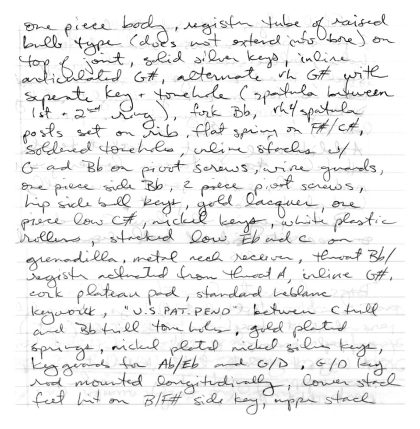 one piece body, register tube of raised
bulb type (does not extend into bore) on
top of joint, solid silver keys, inline
articulated G#, alternate rh G# with
seperate key + tonehole (spatula between
1st + 2nd ring), fork Bb, rh4 spatula
posts set on rib, flat spring on F#/C#,
soldered toneholes, inline stacks w/
G ad Bb on pivot screws, wire guards,
one piece side Bb, 2 piece pivot screws,
hip side bell keys, gold lacquer, one
piece low C#, nickel keys, white plastic
rollers, stacked low Eb and C on
grenadilla, metal neck receiver, throat Bb/
register activated from throat A, inline G#,
cork plateau pad, standard leblanc
keywork, "U.S. PAT. PEND" between C trill
and Bb trill tone holes, gold plated
springs, nickel plated nickel silver keys,
keyguards for Ab/Eb and G/D, G/D key
rod mounted longitudinally, lower stack
feet hit on B/F# side key, upper stack